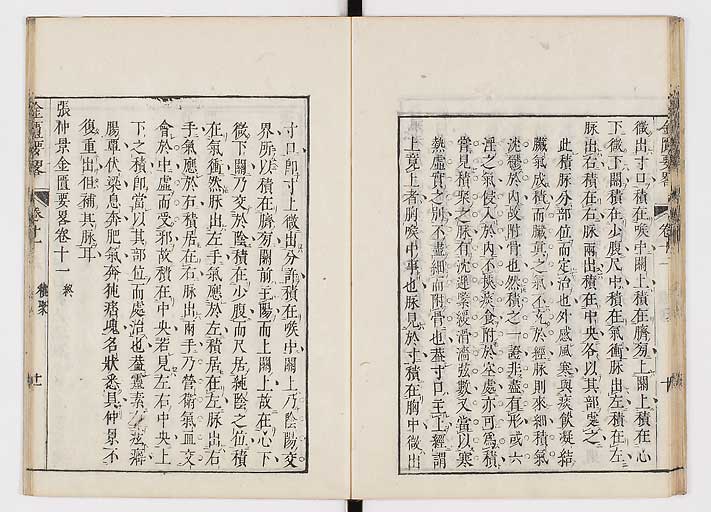 微出寸口積在喉中關上積在臍旁上關上積在心
下微下關積在少腹尺中積在氣衝脉出左積在左
脉出右積在右脉兩出積在中央各以其部處之
此積脉分部位而定治也外感風寒與痰飲凝結
臟氣成積而臟真之氣不充於經脉則來細積氣
沈鬱於內故附骨也然積之一證非盡有形或六
淫之氣侵入於內不與痰食附於某處亦可為積
嘗見積聚之脉有沈遲緊緩滑濇弦數又當以寒
熱虛實之別不盡細而附骨也蓋寸口主上經謂
上竟上者胸喉中事也脉見於寸積在胸中微出
寸口即寸上微出分許積在喉中關上乃陰陽交
界所以積在臍旁關前主陽而上關上故在心下
微下關乃交於陰積在少腹而尺居純陰之位積
在氣衝然脉出左手氣應於左積居在左脉出右
手氣應於右積居在右脉出兩手乃營衛氣血交
會於中虛而受邪故積在中央若見左右中央上
下之積即當以其部位而處治也蓋靈素
腸覃伏梁息奔肥氣奔豚痞塊名狀悉具仲景不
復重出但補其脉耳
張仲景金匱要畧卷十一
金匱要畧
卷十一
積聚